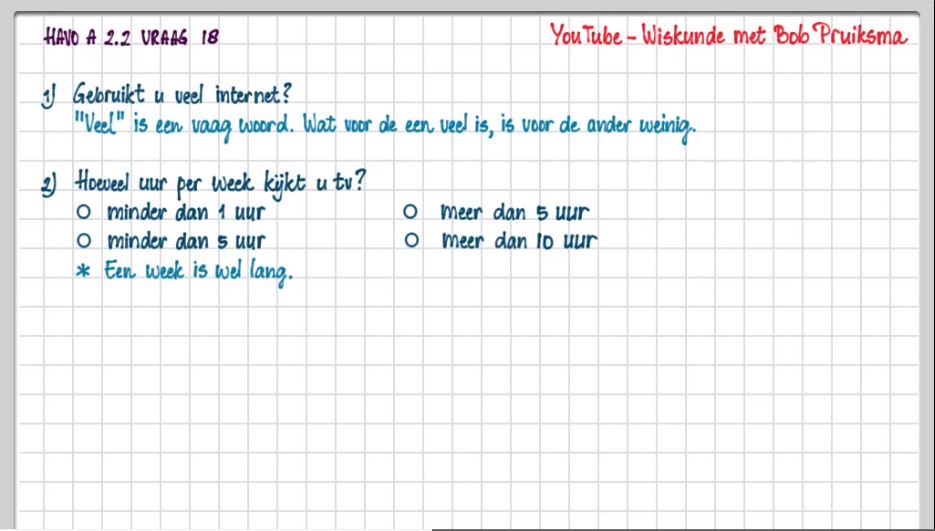 HAVO A 2.2 VRAAG 18
YouTube - Wiskunde met Bob Pruiksma
1) Gebruikt u veel internet?
"Veel" is een vaag woord. Wat voor de een veel is, is voor de ander weinig.
2) Hoeveel uur per week kijkt u tv?
O minder dan 1 uur O meer dan 5 uur
O minder dan 5 uur O meer dan 10 uur
* Een week is wel lang.